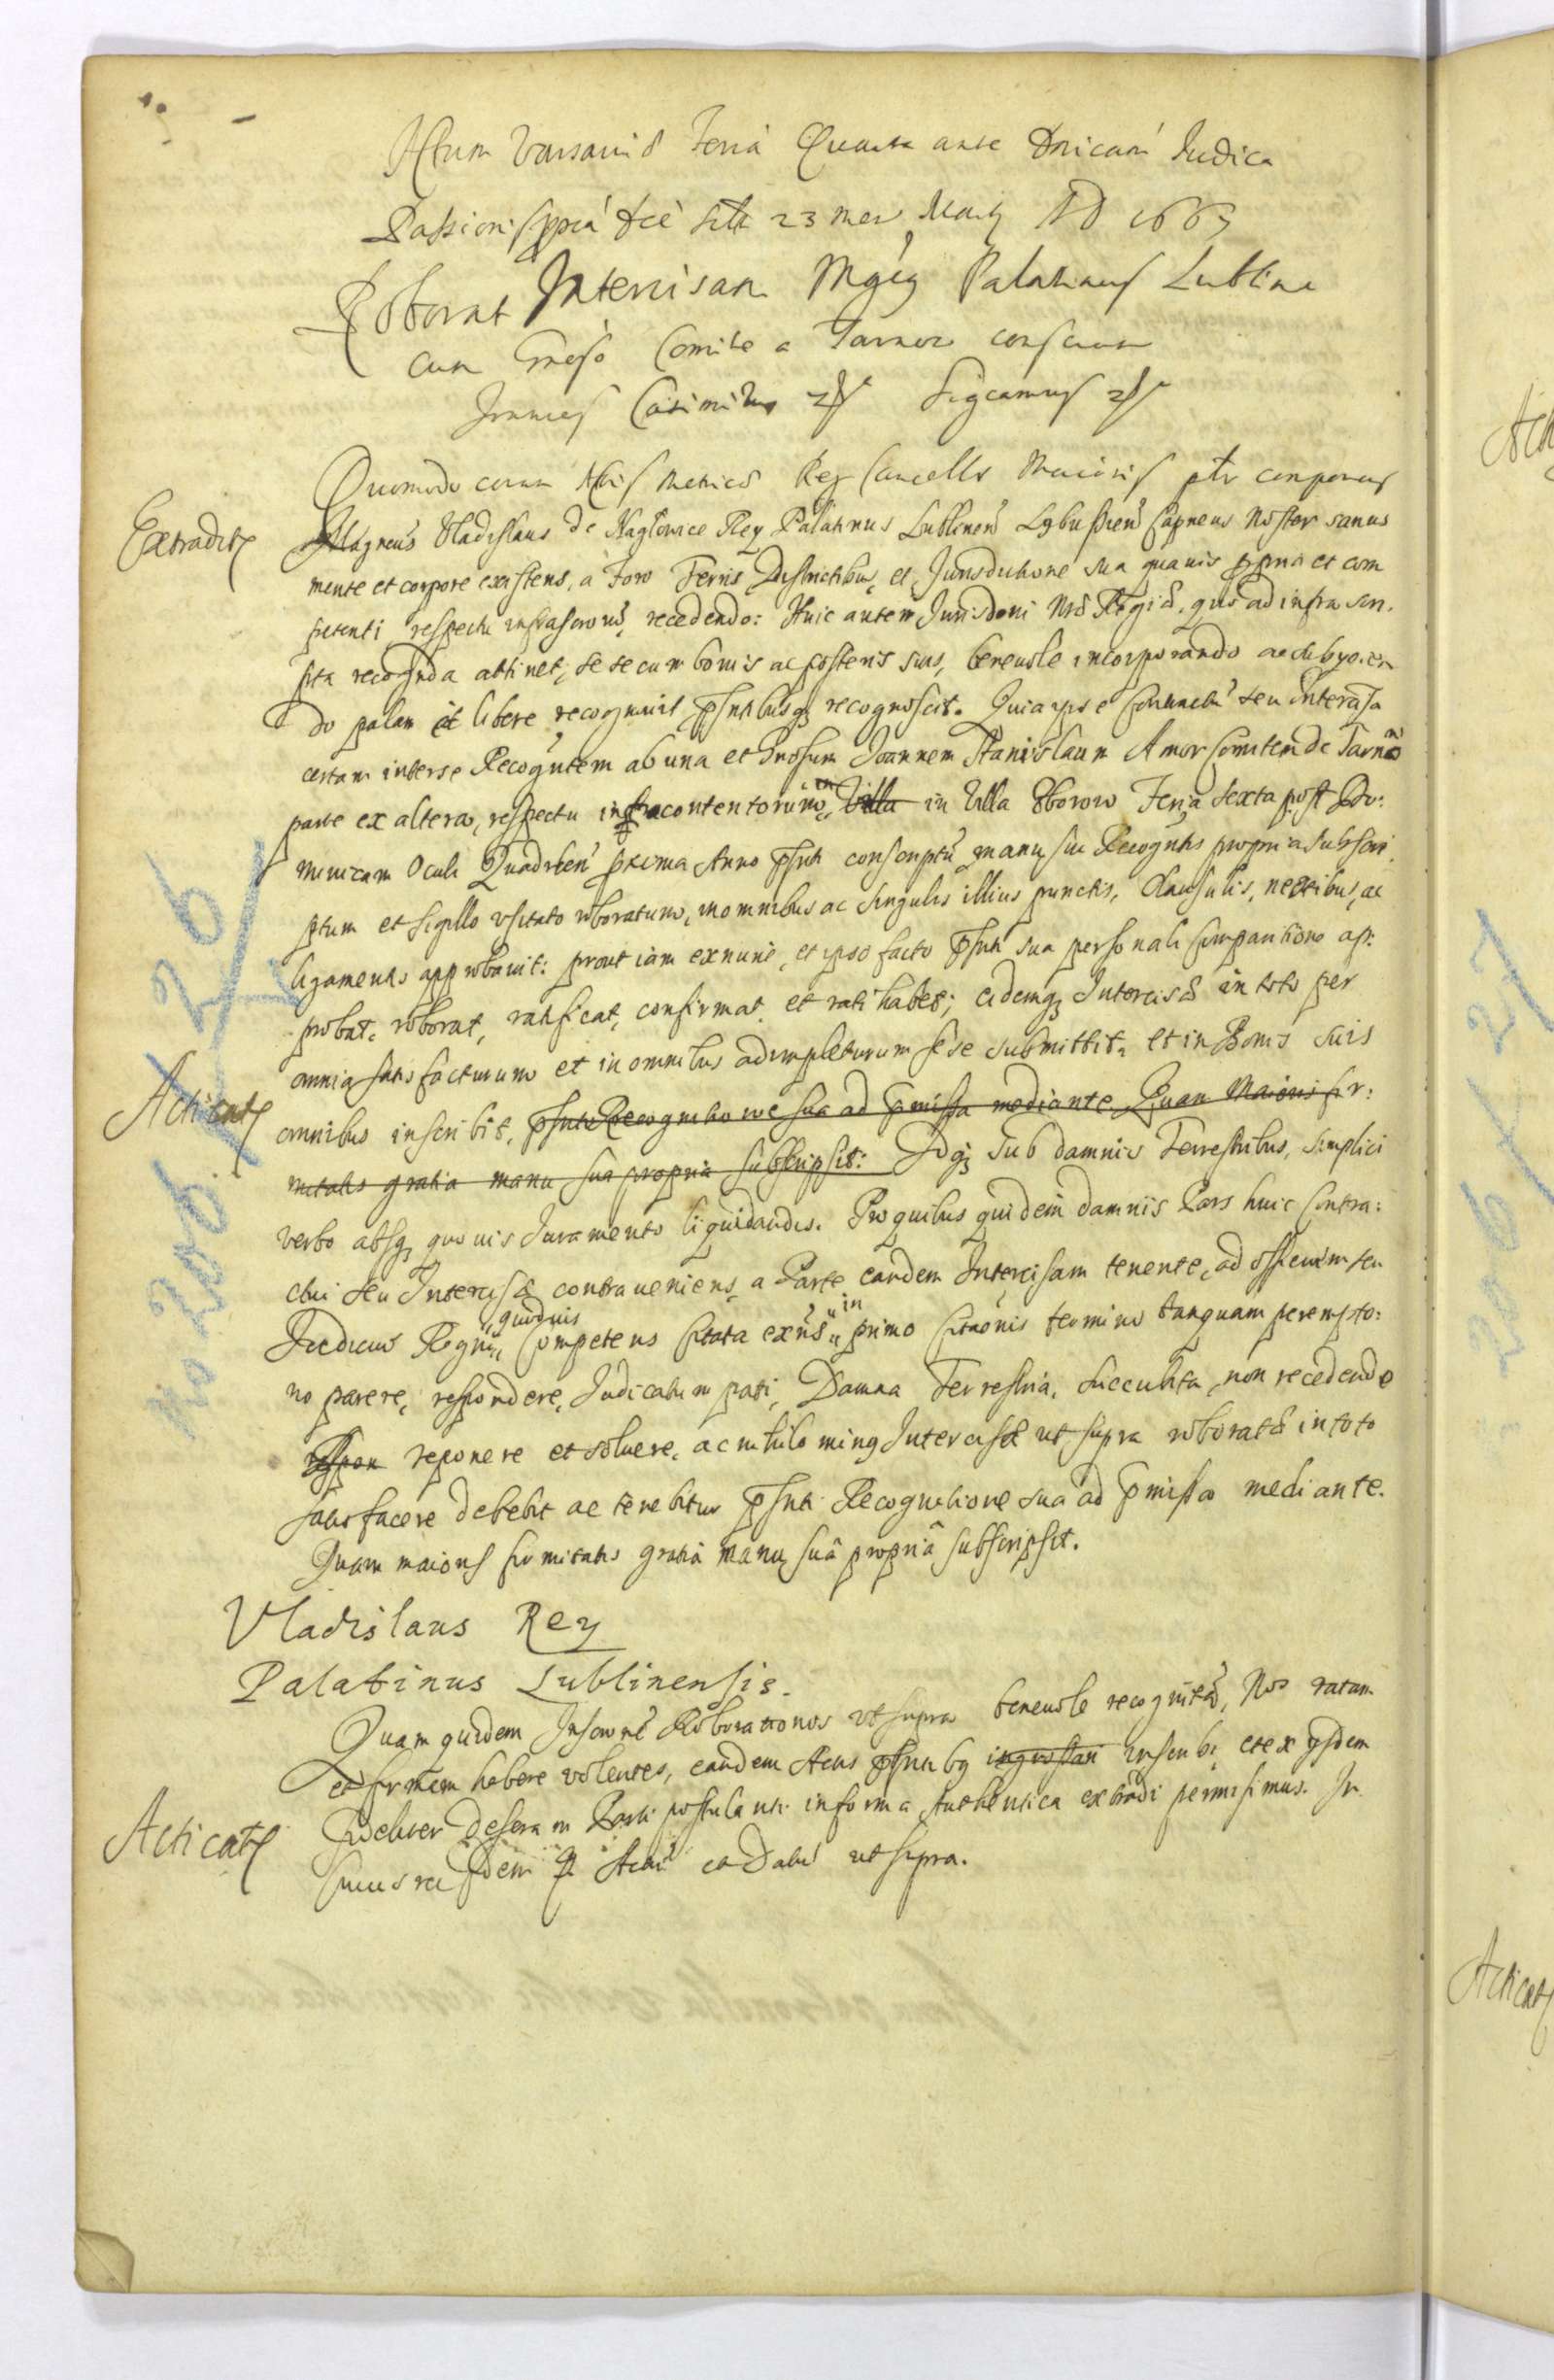 Actum Varsaviæ Feria Quarta ante Dnicam Judica
Passionis ppria die 23 men. Martij AD 1667
Roborat Intercisam Mgcus Palatinus Lublinen
cum Gnoso Comite a Tarnow
Joannes Casimirus Significamus
Quomodo coram Actis Metrices Reg Cancellr Maioris ptr comparens
Extradit
Magncus Vladislaus de Naglowice Rey Palatinus Lublinen Lybussien Capneus Noster sanus
mente et corpore existens, a Foro Terris Districtibus, et Jurisdictione sua quavis ppria et com
petenti respectu infrascrorum recedendo: Huic autem Jurisdoni Nræ Regiæ, quo ad infra scri
pta recognda attinet, se se cum bonis ac posteris suis, benevole incorporando ac subyocien
do palam et libere recognovit psntibusq recognoscit. Quia ipse Contractu seu Intercisa
certam inter se Recognitem ab una et Gnosum Joannem Stanislaum Amor Comitem de Tarnow
parte ex altera, respectu infracontentorum, Villa in Villa Oborow Feria Sexta post Do:
minicam Oculi Quadrlem proxima Anno psnti conscriptu manu sui Recogntis propria subscri
ptum et sigillo usitato roboratum, in omnibus ac singulis illius punctis, clausulis, nexibus, ac
ligamentis approbavit: prout iam ex nunc, et ipso facto psnti sua personali comparitione ap:
probat, roborat, ratificat, confirmat, et ratihabet; eidemq Intercisæ in toto per
omnia satisfacturum et in omnibus adimpleturum sese submittit, et in Bonis suis
Acticat
omnibus inscribit, psnti Recognitione sua ad pmissa mediante Quam Maioris fir:
mitatis gratia manu sua propria subscripsit: Idq sub damnis Terrestribus, simplici
verbo absq quovis Juramento liquidandis. Pro quibus quidem damnis Pars huic Contra:
ctui seu Intercisæ contraveniens, a Parte eandem Intercisam tenente, ad officium seu
Judicium Regni quodvis Competens Citata exns in primo Citaonis termino tanquam perempto:
rio parere, respondere, Judicatum pati, Damna Terrestria, succubita, non recedendo
respon reponere et solvere, ac nihilo minq Intercisæ ut supra roboratæ in toto
satisfacere debebit ac tenebitur psnti Recognitione sua ad pmissa mediante.
Quam maioris firmitatis gratia manu suâ propriâ subscripsit.
Vladislaus Rey
Palatinus Lublinensis.
Quam quidem Roborationis ut supra benevole recognita, Nos ratam
et firmam habere volentes, eandem Actis psntibq ingrossari inscribi et ex ysdem
Acticat
fideliter Parti postulanti in forma Authentica extradi permisimus. In
cuius rei fidem Actu et Datu ut supra.